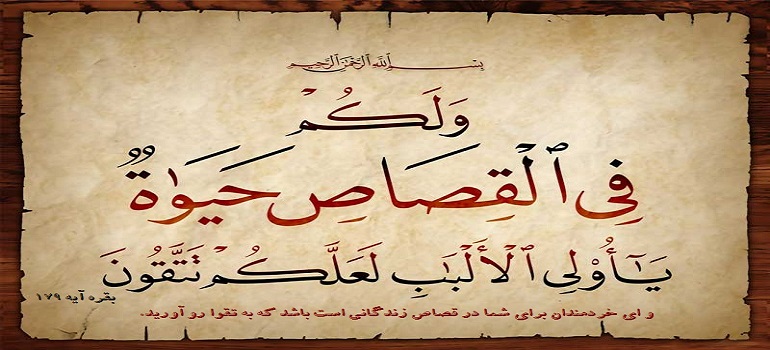 بِسْمِ ٱللَّهِ ٱلرَّحْمَٰنِ ٱلرَّحِيمِ
وَلَكُمْ
فِي ٱلْقِصَاصِ حَيَوٰةٌ
يَـٰٓأُوْلِي ٱلْأَلْبَـٰبِ لَعَلَّكُمْ تَتَّقُونَ
بقره آیه ۱۷۹
و ای خردمندان برای شما در قصاص زندگانی است باشد که به تقوا رو آورید.